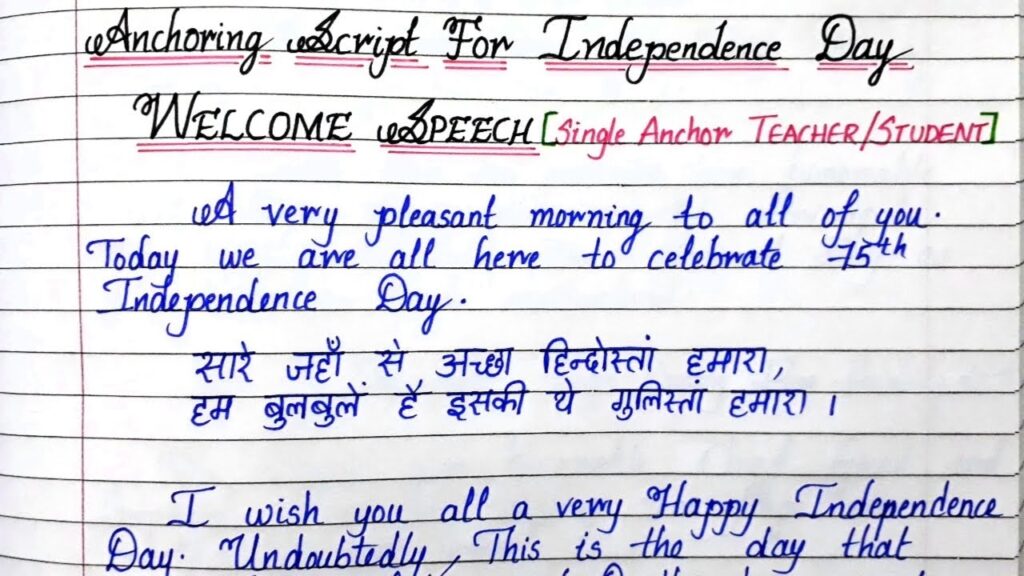 Anchoring Script For Independence Day
WELCOME SPEECH [Single Anchor TEACHER/STUDENT]
A very pleasant morning to all of you.
Today we are all here to celebrate 75th
Independence Day.
सारे जहाँ से अच्छा हिन्दोस्तां हमारा,
हम बुलबुलें है इसकी ये गुलिस्तां हमारा ।
I wish you all a very Happy Independence
Day. Undoubtedly, This is the day that